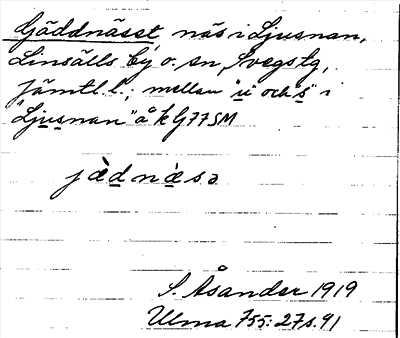 Gäddnäset näs i Ljusnan,
Linsälls by o. sn, Svegs tg,
Jämtl. l.; mellan "u och s" i
"Ljusnan" å kG77SM
jèdnèsa
S. Åsander 1919
Ulma 755:27 s. 91